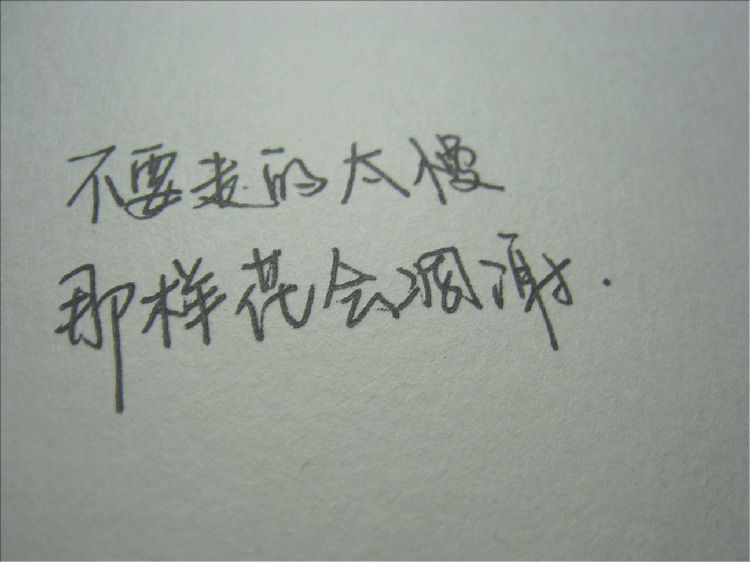 不要走的太慢
那样花会凋谢.